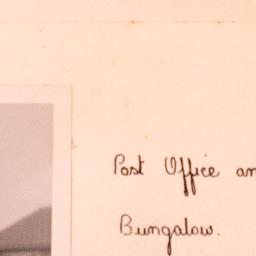 Post Office an
Bungalow.